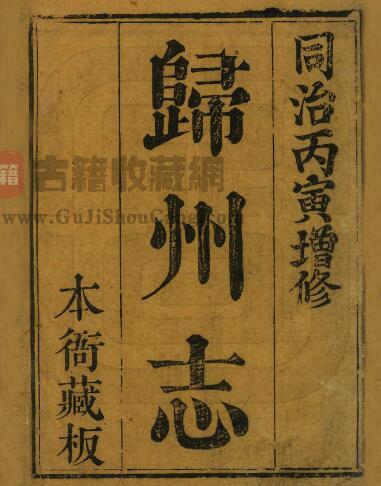 同治丙寅增修
歸州志
本衙藏板
籍 古籍收藏網
www.GuJiShouCang.com